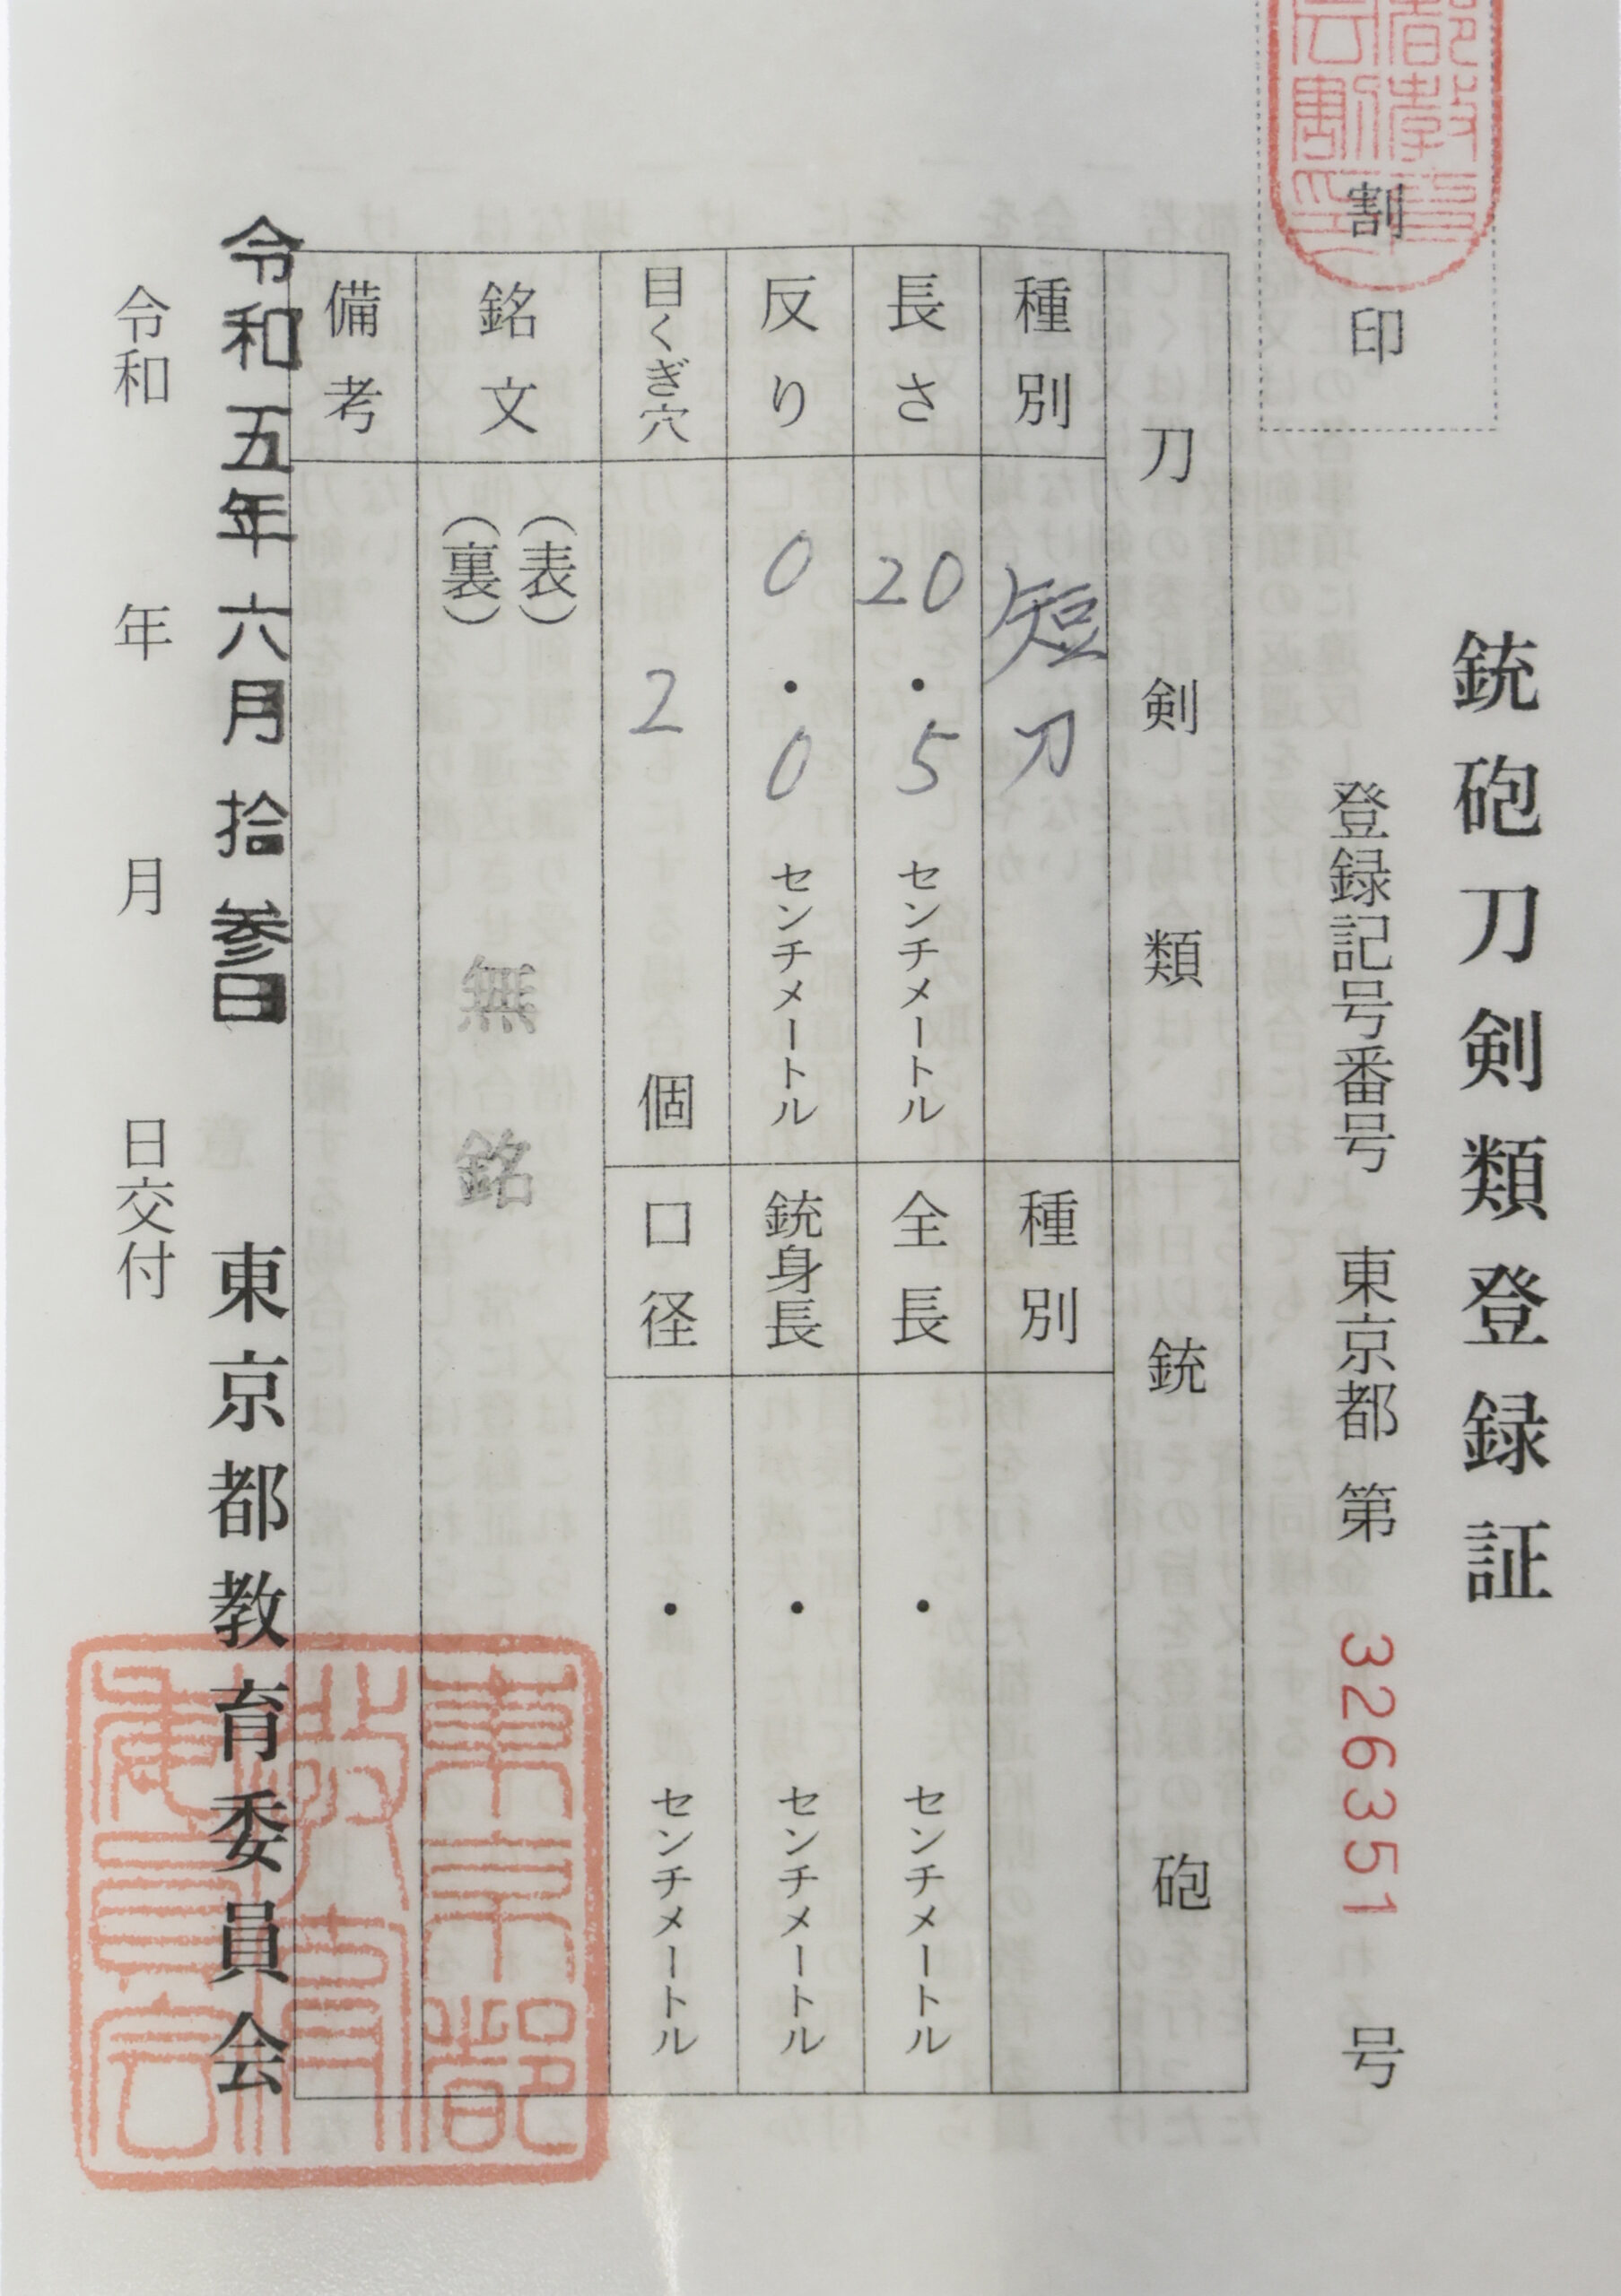 銃砲刀剣類登録証
割印
登録記号番号 東京都 第 326351 号
刀剣類
銃砲
種別 短刀
種別
長さ 20.5 センチメートル
全長 ・ センチメートル
反り 0.0 センチメートル
銃身長 ・ センチメートル
目くぎ穴 2 個
口径 ・ センチメートル
銘文 (表) 無銘
(裏)
備考
令和五年六月拾参日
東京都教育委員会
令和 年 月 日交付